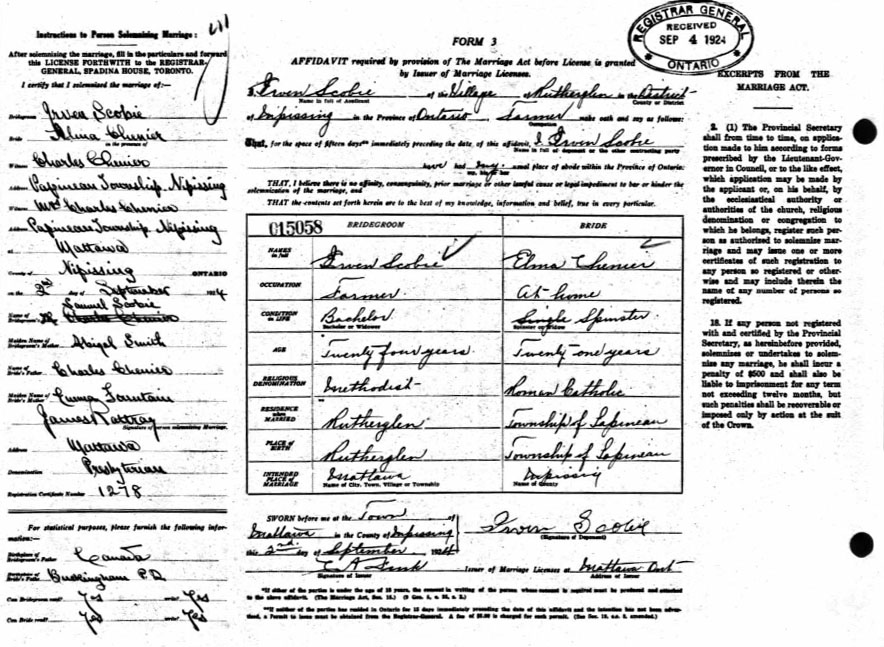 Instructions to Person Solemnizing Marriage:
After solemnizing the marriage, fill in the particulars and forward
this LICENSE FORTHWITH to the REGISTRAR-
GENERAL, SPADINA HOUSE, TORONTO.
I certify that I solemnized the marriage of:—
Bridegroom Irven Scobie
Bride Elma Chenier
in the presence of
Witness Charles Chenier
Address Papineau Township Nipissing
Witness Mrs Charles Chenier
Address Papineau Township Nipissing
at Mattawa
County of Nipissing ONTARIO
on the 2nd day of September 1924
Samuel Scobie
Name of Bridegroom's Father Charles Chenier
Maiden Name of Bridegroom's Mother Abigel Smith
Name of Bride's Father Charles Chenier
Maiden Name of Bride's Mother Emma Fountain
James Rattray
Signature of person solemnizing Marriage.
Address Mattawa
Denomination Presbyterian
Registration Certificate Number 1278
For statistical purposes, please furnish the following infor-
mation:—
Birthplace of Bridegroom's Father Canada
Birthplace of Bride's Father Buckingham P.Q.
Can Bridegroom read? Yes write? Yes
Can Bride read? Yes write? Yes
FORM 3
AFFIDAVIT required by provision of The Marriage Act before License is granted
by Issuer of Marriage Licenses.
I, Irven Scobie of the Village of Rutherglen in the District
Name in full of Applicant County or District
of Nipissing in the Province of Ontario, Farmer make oath and say as follows:
Occupation
That, for the space of fifteen days immediately preceding the date of this affidavit, I Irven Scobie
Name in full of deponent or the other contracting party
have had my usual place of abode within the Province of Ontario:
my, his or her
THAT, I believe there is no affinity, consanguinity, prior marriage or other lawful cause or legal impediment to bar or hinder the
solemnization of the marriage, and
THAT the contents set forth herein are to the best of my knowledge, information and belief, true in every particular.
015058 BRIDEGROOM BRIDE
NAMES in full Irven Scobie Elma Chenier
OCCUPATION Farmer At home
CONDITION IN LIFE Bachelor Single Spinster
Bachelor or Widower Spinster or Widow
AGE Twenty four years Twenty-one years
RELIGIOUS DENOMINATION Methodist Roman Catholic
RESIDENCE when MARRIED Rutherglen Township of Papineau
PLACE OF BIRTH Rutherglen Township of Papineau
INTENDED PLACE OF MARRIAGE Mattawa Nipissing
Name of City, Town, Village or Township Name of County
SWORN before me at the Town of
Mattawa in the County of Nipissing
this 2nd day of September 1924
Irven Scobie
(Signature of Deponent)
Signature of Issuer
Issuer of Marriage Licenses at Mattawa Ont
Address of Issuer
*If either of the parties is under the age of 18 years, the consent in writing of the person whose consent is required must be produced and attached
to the above affidavit. (The Marriage Act, Sec. 15.)
**If neither of the parties has resided in Ontario for 15 days immediately preceding the date of this affidavit and the intention has not been adver-
tised, a Permit to issue must be obtained from the Registrar-General.
REGISTRAR GENERAL
RECEIVED
SEP 4 1924
ONTARIO
EXCERPTS FROM THE
MARRIAGE ACT.
2. (1) The Provincial Secretary
shall from time to time, on applica-
tion made to him according to forms
prescribed by the Lieutenant-Gov-
ernor in Council, or to the like effect,
which application may be made by
the applicant or, on his behalf, by
the ecclesiastical authority or
authorities of the church, religious
denomination or congregation to
which he belongs, register such per-
son as authorized to solemnize mar-
riage and may issue one or more
certificates of such registration to
any person so registered or other-
wise and may include therein the
name of any number of persons so
registered.
18. If any person not registered
with and certified by the Provincial
Secretary, as hereinbefore provided,
solemnizes or undertakes to solem-
nize any marriage, he shall incur a
penalty of $500 and shall also be
liable to imprisonment for any term
not exceeding twelve months, but
such penalties shall be recoverable or
imposed only by action at the suit
of the Crown.